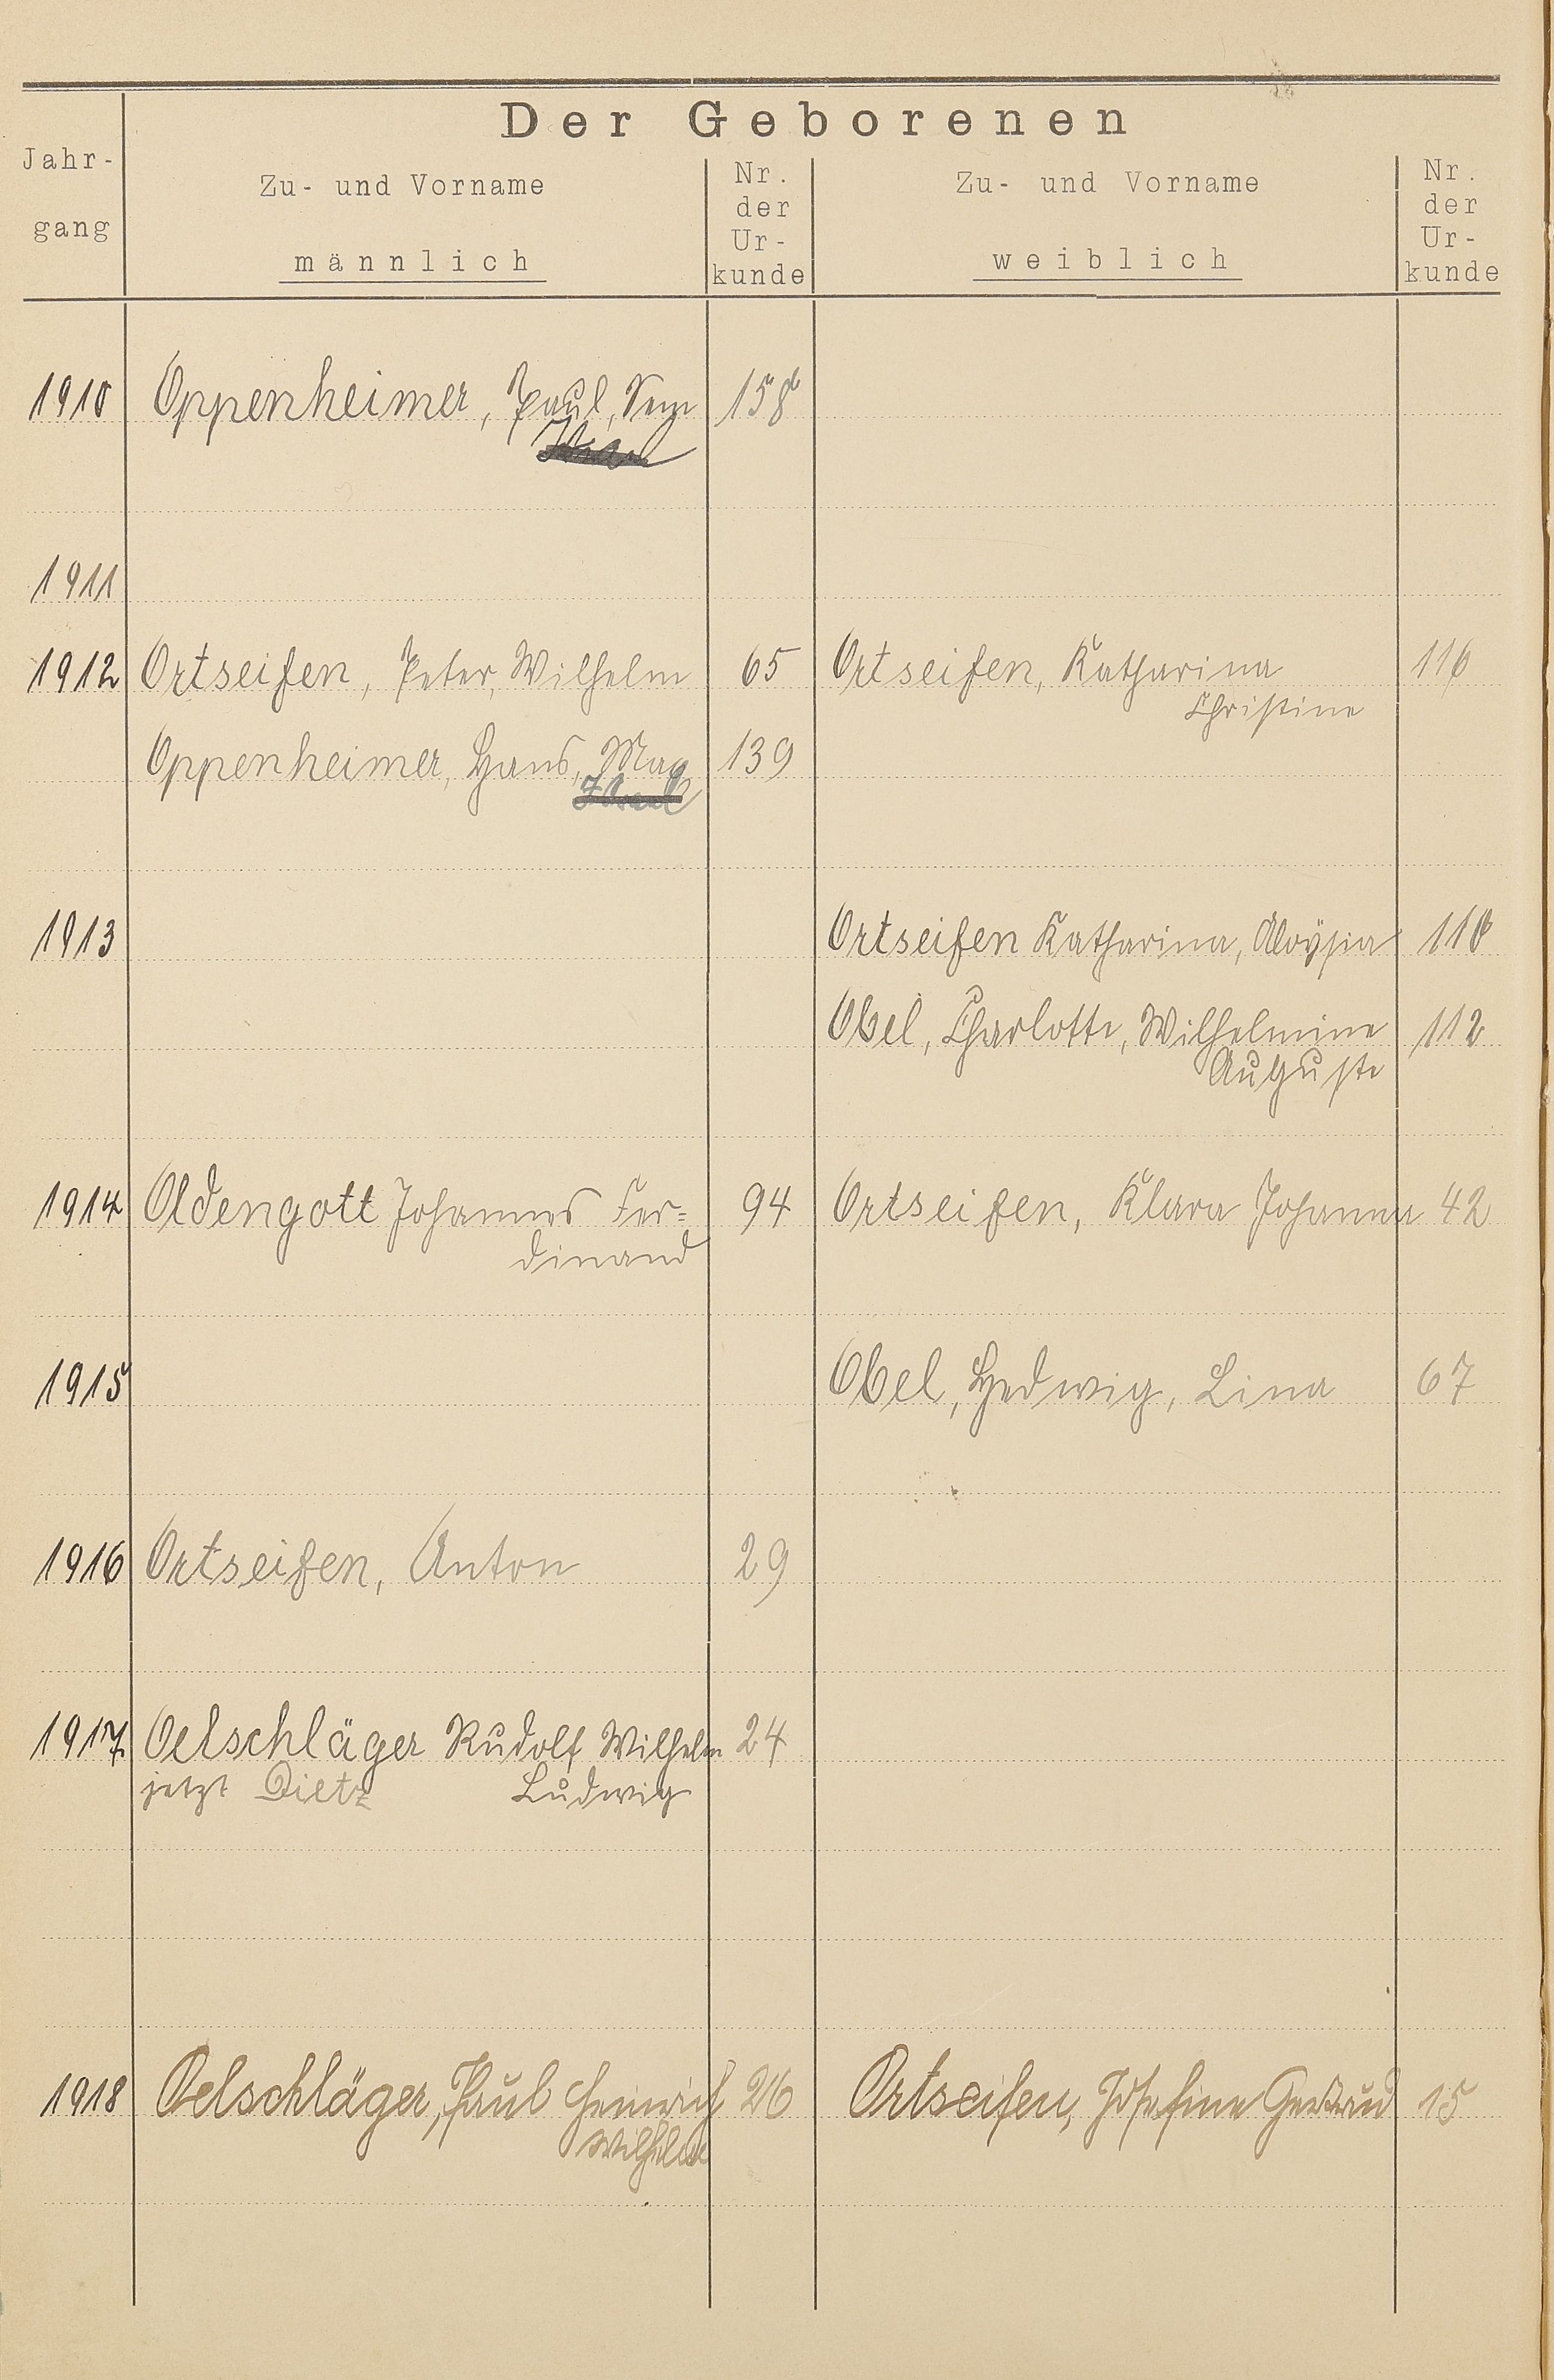 Der Geborenen
Jahr-
gang
Zu- und Vorname
männlich
Nr.
der
Ur-
kunde
Zu- und Vorname
weiblich
Nr.
der
Ur-
kunde
1910 Oppenheimer, Paul, 158
Israel
1911
1912 Ortseifen, Peter, Wilhelm 65 Ortseifen, Katharina 116
Christine
Oppenheimer, Hans, Max 139
Israel
1913 Ortseifen Katharina, Aloÿsia
Obel, Charlotte, Wilhelmine 112
Auguste
1914 Oldengott Johannes Fer= 94 Ortseifen, Klara Johanna 42
dinand
1915 Obel, Hedwig, Lina 67
1916 Ortseifen, Anton 29
1917 Oelschläger Rudolf Wilhelm 24
jetzt Dietz Ludwig
1918 Oelschläger, Paul Heinrich 26 Ortseifen, Josefine Gertrud 15
Wilhelm